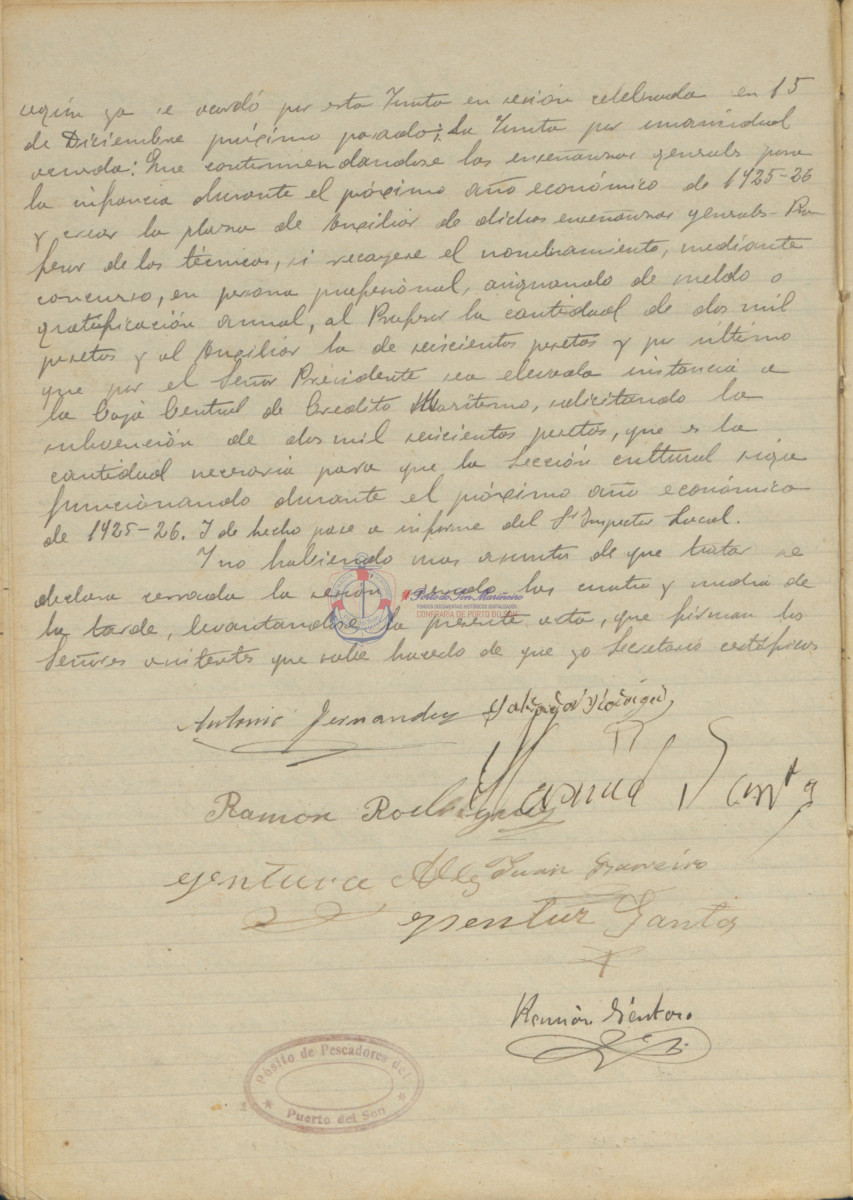 según ya se acordó por esta Junta en sesión celebrada en 15
de Diciembre próximo pasado; La Junta por unanimidad
acuerda: Que continuen dandose las enseñanzas generales para
la infancia durante el próximo año económico de 1925-26
y crear la plaza de Auxiliar de dichas enseñanzas generales-Pro
fesor de las técnicas, si recayese el nombramiento, mediante
concurso, en persona profesional, asignando de sueldo o
gratificación anual, al Profesor la cantidad de dos mil
pesetas y al Auxiliar la de seiscientas pesetas y por último
que por el Señor Presidente sea elevada instancia a
la Caja Central de Credito Maritimo, solicitando la
subvención de dos mil seiscientas pesetas, que es la
cantidad necesaria para que la Sección cultural siga
funcionando durante el próximo año económico
de 1925-26. Y de hecho pase a informe del Sr Inspector Local.
Y no habiendo mas asuntos de que tratar se
declara cerrada la sesión siendo las cuatro y media de
la tarde, levantandose la presente acta, que firman los
Señores asistentes que sabe hacerlo de que yo Secretario certifico
Porto do Son Mariñeiro
FONDOS DOCUMENTAIS HISTÓRICOS DIXITALIZADOS
CONFRARIA DE PORTO DO SON
Antonio Fernandez
Manuel Santos
Ramon Rodriguez
Ventura Juan Barreiro
Ventura Santos
Ramón Sientoro
Pósito de Pescadores del
Puerto del Son